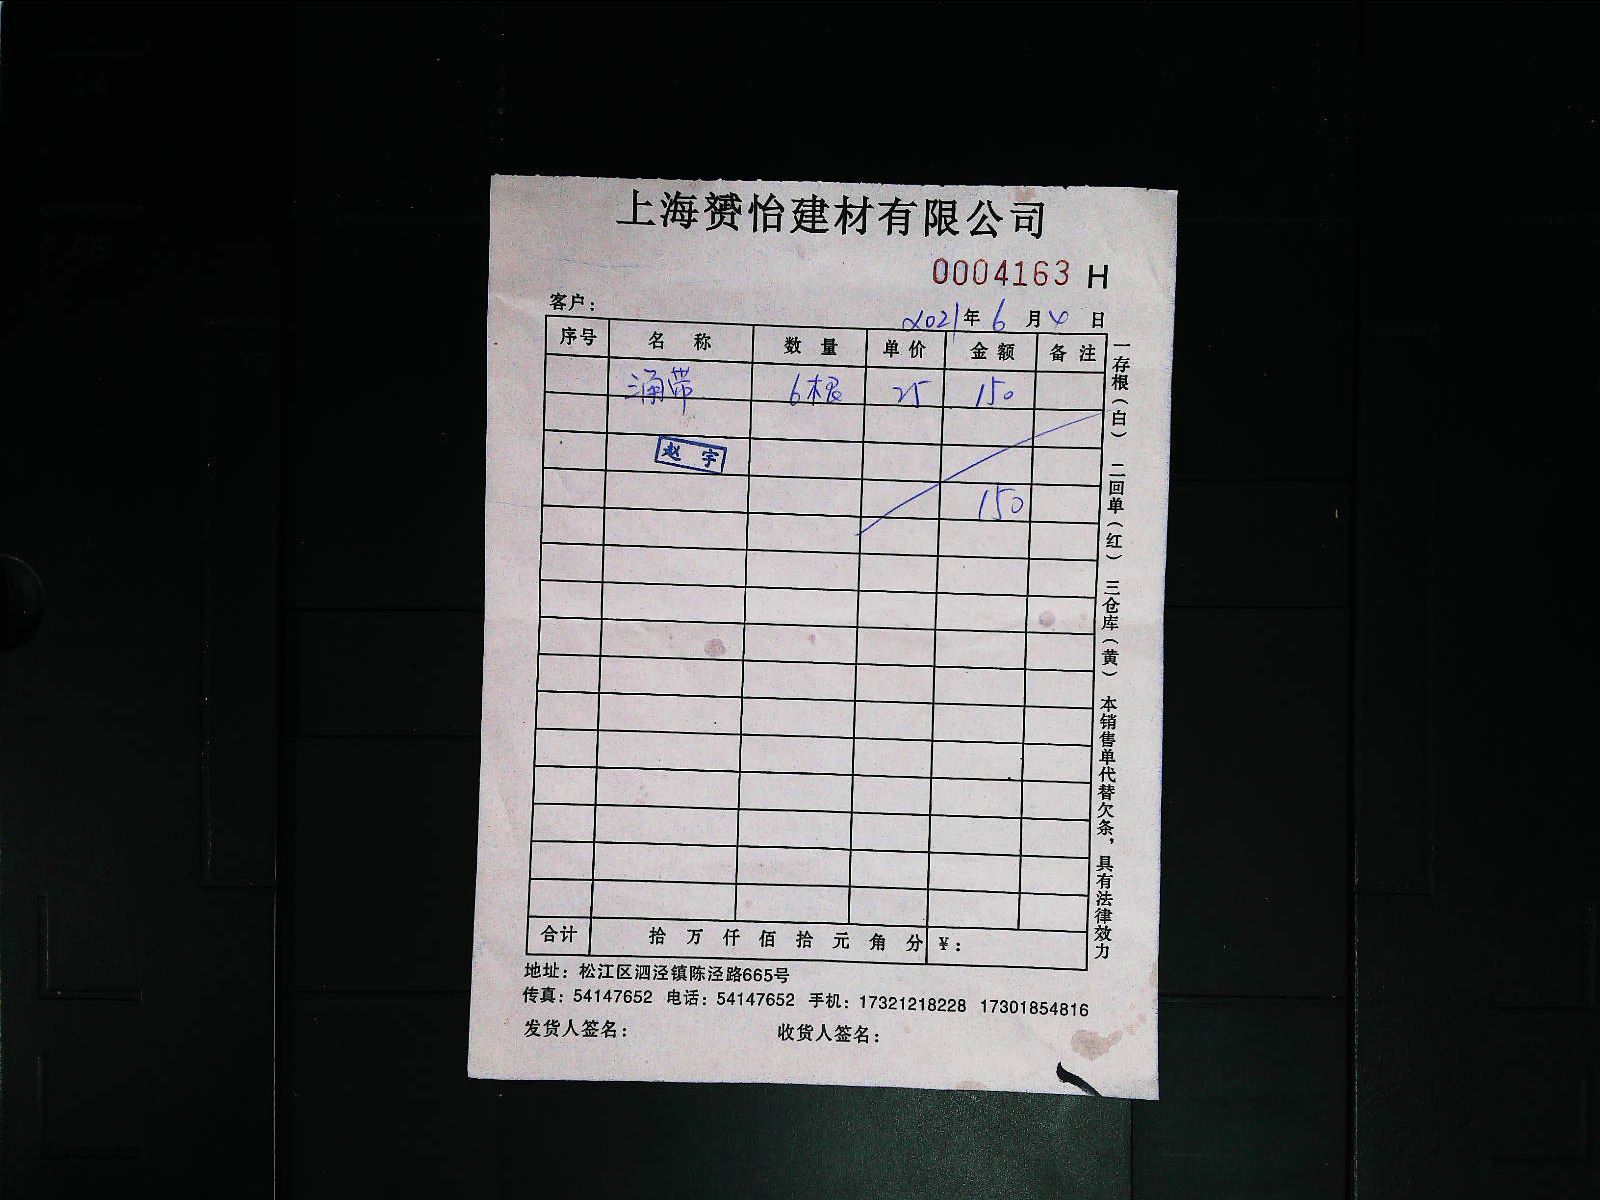 上海赟怡建材有限公司
0004163 H
客户：
2021年6月4日
序号 名称 数量 单价 金额 备注
涌带 6根 25 150
赵宇
150
合计 拾万仟佰拾元角分 ¥：
地址：松江区泗泾镇陈泾路665号
传真：54147652 电话：54147652 手机：17321218228 17301854816
发货人签名： 收货人签名：
一存根（白） 二回单（红） 三仓库（黄） 本销售单代替欠条，具有法律效力